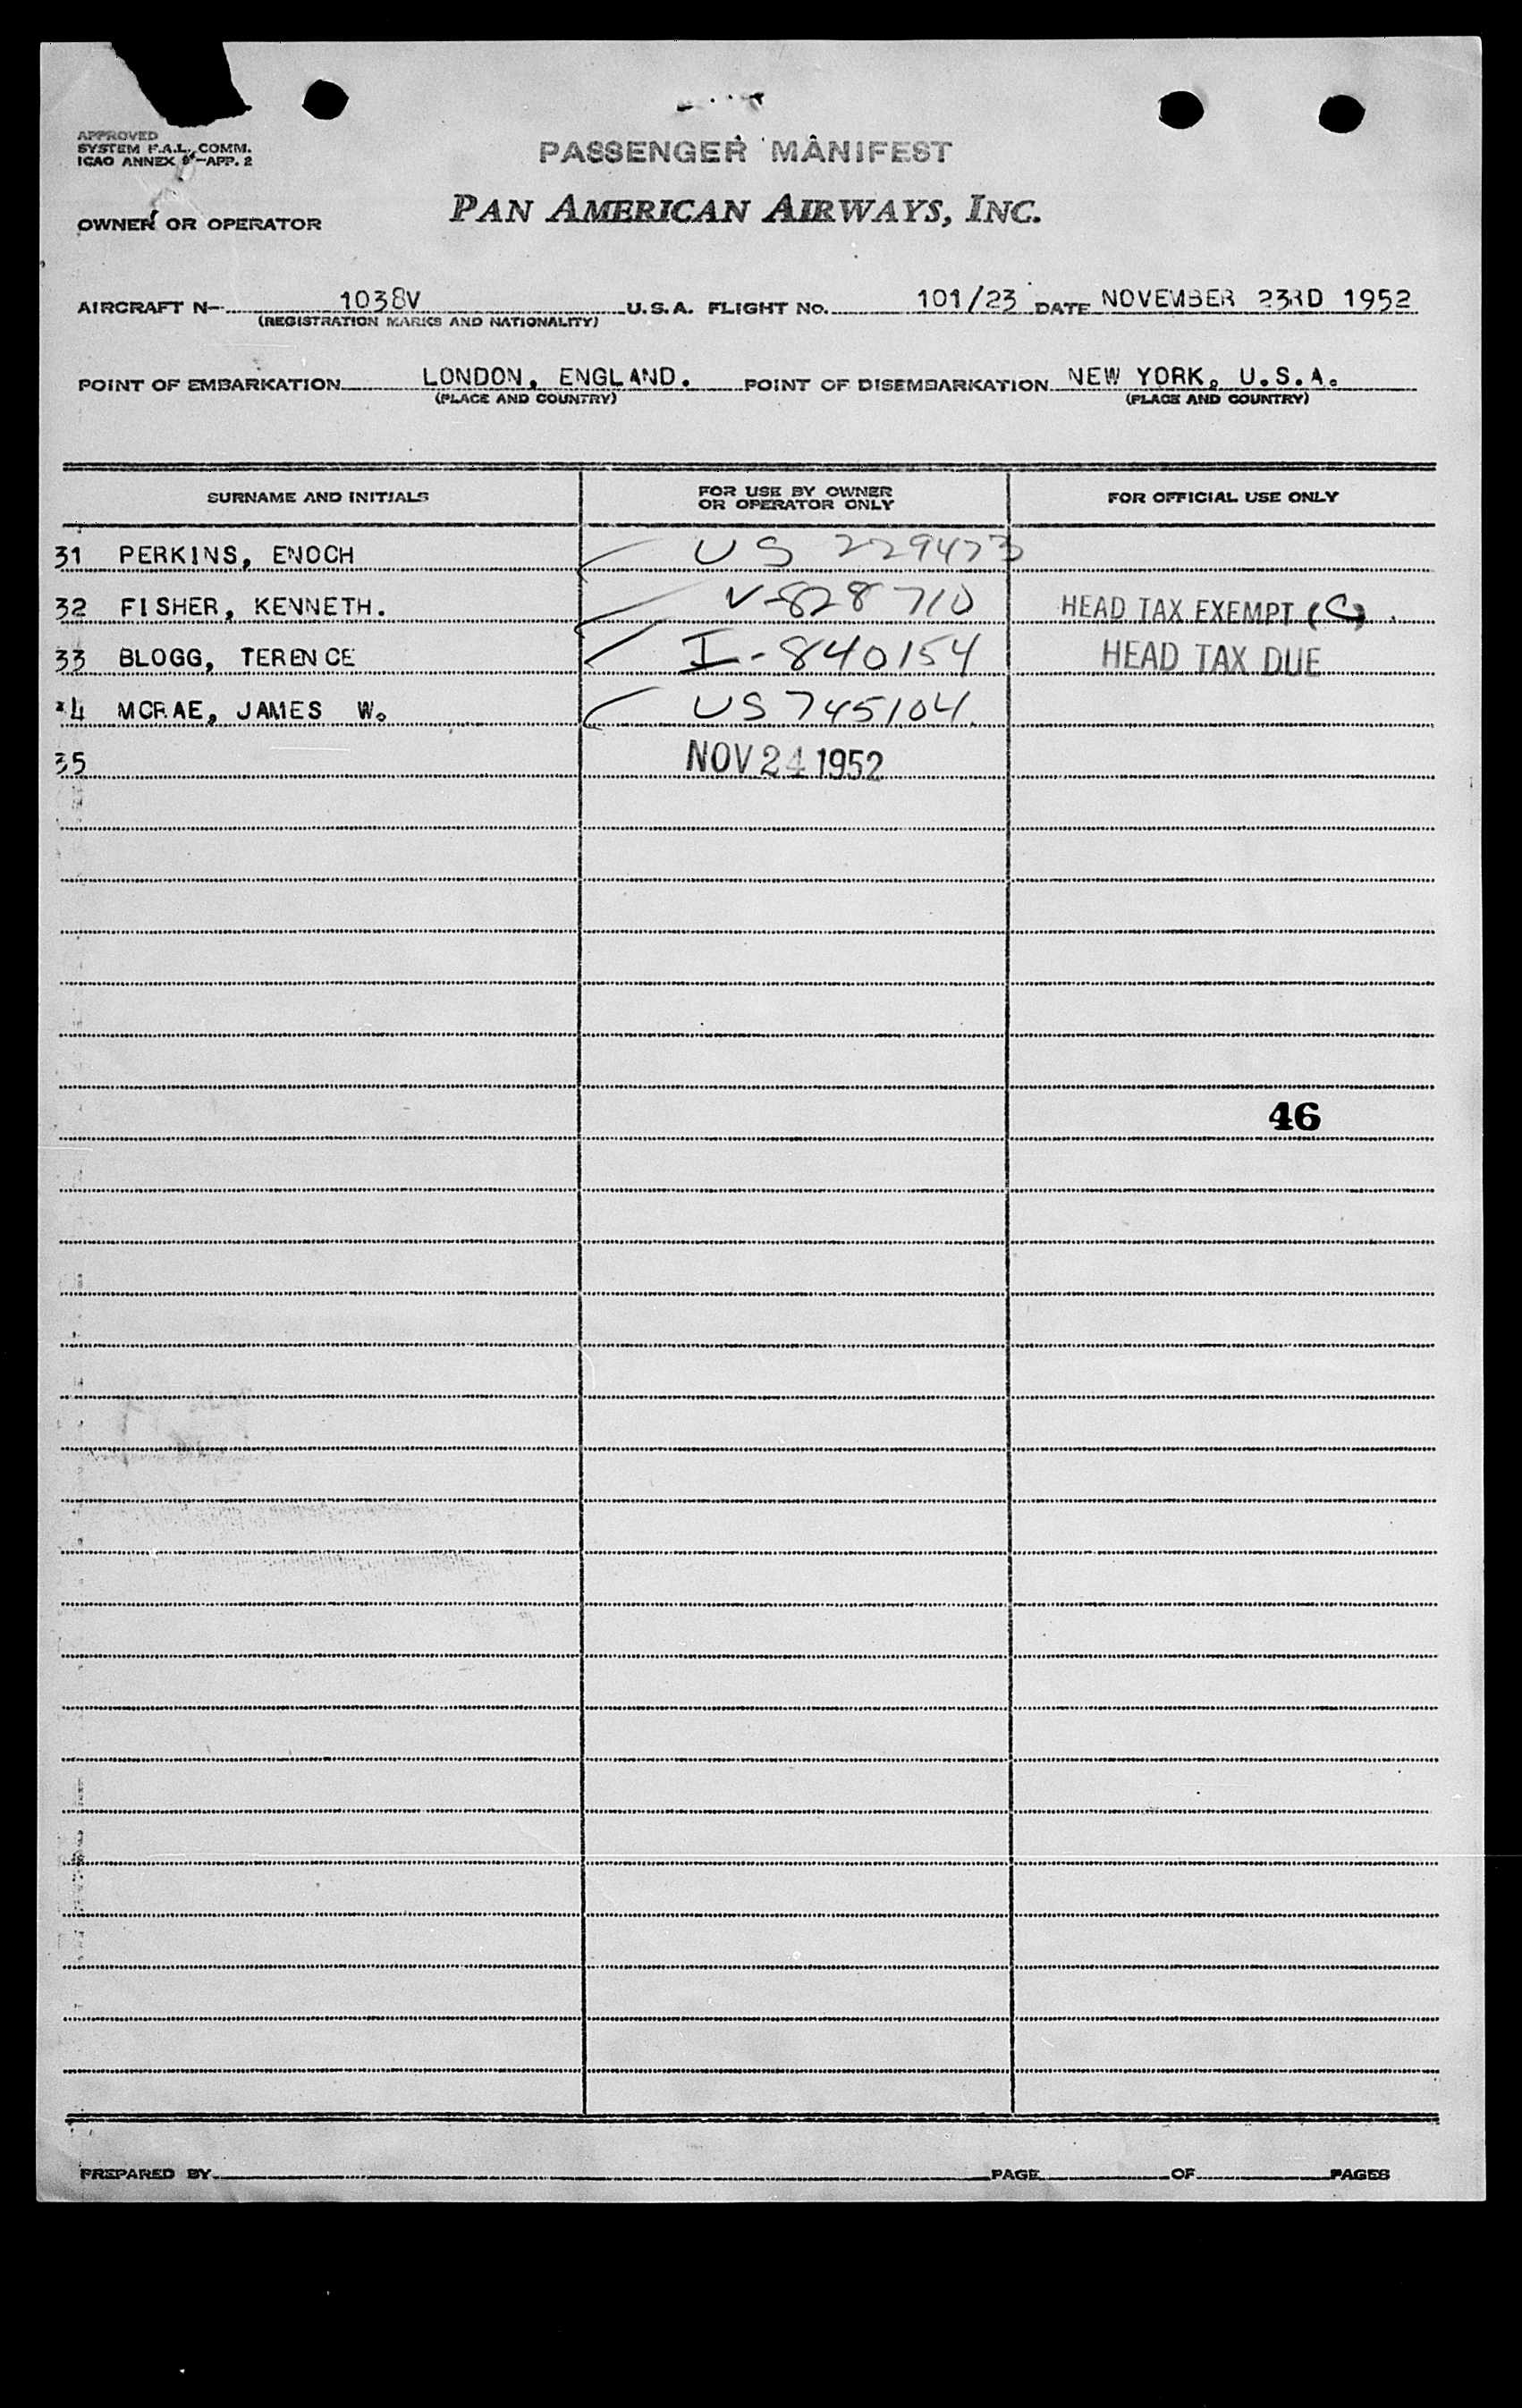 APPROVED
SYSTEM F.A.L. COMM.
ICAO ANNEX 9-APP. 2
PASSENGER MANIFEST
PAN AMERICAN AIRWAYS, INC.
OWNER OR OPERATOR
AIRCRAFT N- 1038V U.S.A. FLIGHT NO. 101/23 DATE NOVEMBER 23RD 1952
(REGISTRATION MARKS AND NATIONALITY)
POINT OF EMBARKATION LONDON, ENGLAND. POINT OF DISEMBARKATION NEW YORK, U.S.A.
(PLACE AND COUNTRY) (PLACE AND COUNTRY)
SURNAME AND INITIALS FOR USE BY OWNER OR OPERATOR ONLY FOR OFFICIAL USE ONLY
31 PERKINS, ENOCH US 229473
32 FISHER, KENNETH. V-828710 HEAD TAX EXEMPT (C)
33 BLOGG, TERENCE I-840154 HEAD TAX DUE
34 MCRAE, JAMES W. US 745104
35 NOV 24 1952
46
PREPARED BY PAGE OF PAGES